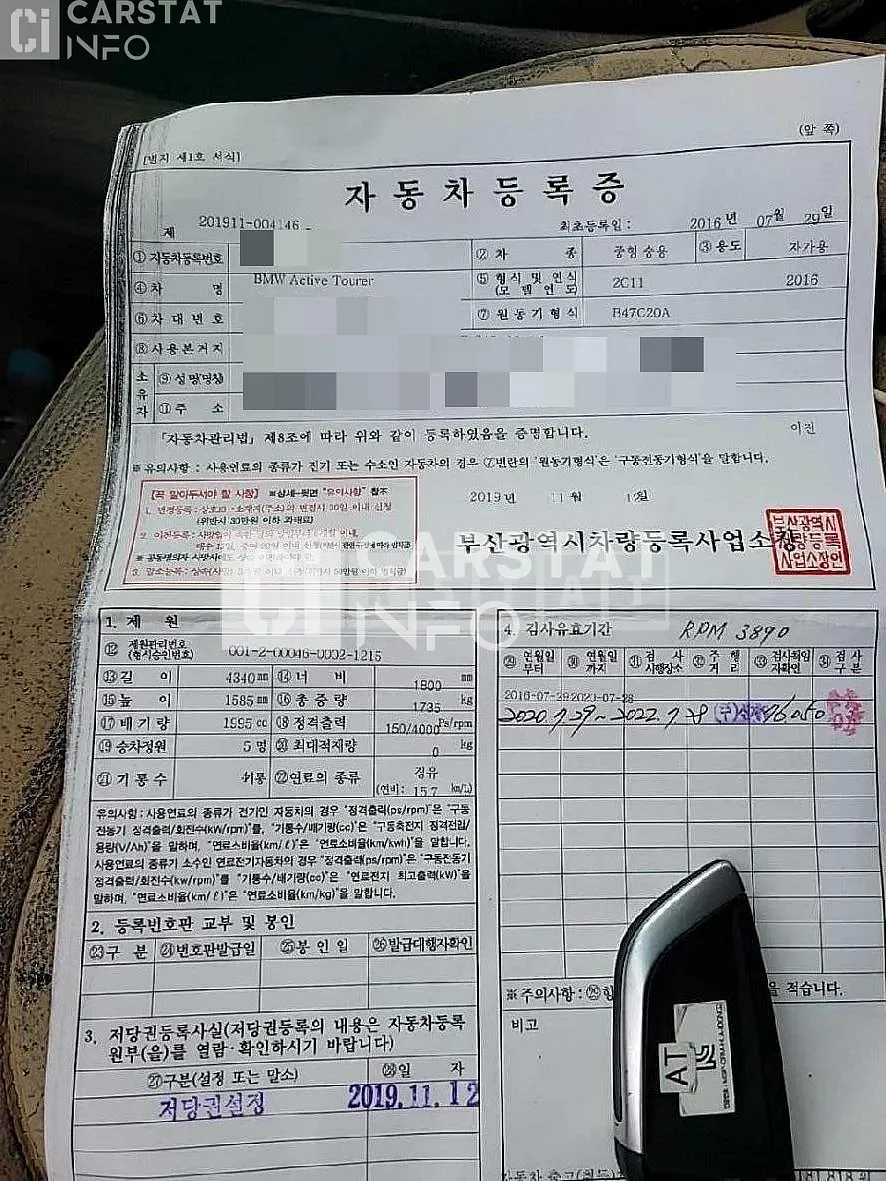 CARSTAT
Ci INFO
(앞 쪽)
[별지 제1호 서식]
자동차등록증
제 201911-004146
최초등록일: 2016년 07월 29일
① 자동차등록번호
② 차 종 중형 승용 ③ 용도 자가용
④ 차 명 BMW Active Tourer ⑤ 형식 및 연식 (모델연도) 2C11 2016
⑥ 차대번호 ⑦ 원동기형식 B47C20A
⑧ 사용본거지
소유자 ⑨ 성명(명칭)
⑪ 주 소
「자동차관리법」 제8조에 따라 위와 같이 등록하였음을 증명합니다. 이전
※ 유의사항 : 사용연료의 종류가 전기 또는 수소인 자동차의 경우 ⑦번란의 '원동기형식'은 '구동전동기형식'을 말합니다.
[꼭 알아두셔야 할 사항] ※상세-뒷면 "유의사항" 참조
(위반시 30만원 이하 과태료)
2019년 11월 12일
부산광역시차량등록사업소장
부산광역시
차량등록
사업소장인
CARSTAT
Ci INFO
1. 제 원
⑫ 제원관리번호 (형식승인번호) 001-2-00046-0002-1216
⑬ 길 이 4340 mm ⑭ 너 비 1800 mm
⑮ 높 이 1585 mm ⑯ 총 중 량 1735 kg
⑰ 배 기 량 1995 cc ⑱ 정격출력 150/4000 Ps/rpm
⑲ 승차정원 5 명 ⑳ 최대적재량 0 kg
㉑ 기 통 수 4기통 ㉒ 연료의 종류 경유 (연비: 15.7 km/L)
유의사항 : 사용연료의 종류가 전기인 자동차의 경우 "정격출력(ps/rpm)"은 "구동
전동기 정격출력/회전수(kW/rpm)"를, "기통수/배기량(cc)"은 "구동축전지 정격전압/
용량(V/Ah)"을 말하며, "연료소비율(km/ℓ)"은 "연료소비율(km/kwh)"을 말합니다.
사용연료의 종류가 수소인 연료전기자동차의 경우 "정격출력(ps/rpm)"은 "구동전동기
정격출력/회전수(kw/rpm)"를 "기통수/배기량(cc)"은 "연료전지 최고출력(kW)"을
말하며, "연료소비율(km/ℓ)"은 "연료소비율(km/kg)"을 말합니다.
2. 등록번호판 교부 및 봉인
㉓ 구 분 ㉔ 번호판발급일 ㉕ 봉 인 일 ㉖ 발급대행자확인
3. 저당권등록사실(저당권등록의 내용은 자동차등록
원부(을)를 열람·확인하시기 바랍니다)
㉗ 구분(설정 또는 말소) ㉘ 일 자
저당권설정 2019.11.12
4. 검사유효기간 RPM 3890
㉙ 연월일부터 ㉚ 연월일까지 ㉛ 검 사 시행장소 ㉜ 주 행 거 리 ㉝ 검사책임자확인 ㉞ 검 사 구 분
2016-07-29 2020-07-28
2020.7.29~2022.7.28
※주의사항 : ㉙ 을 적습니다.
비고
AT